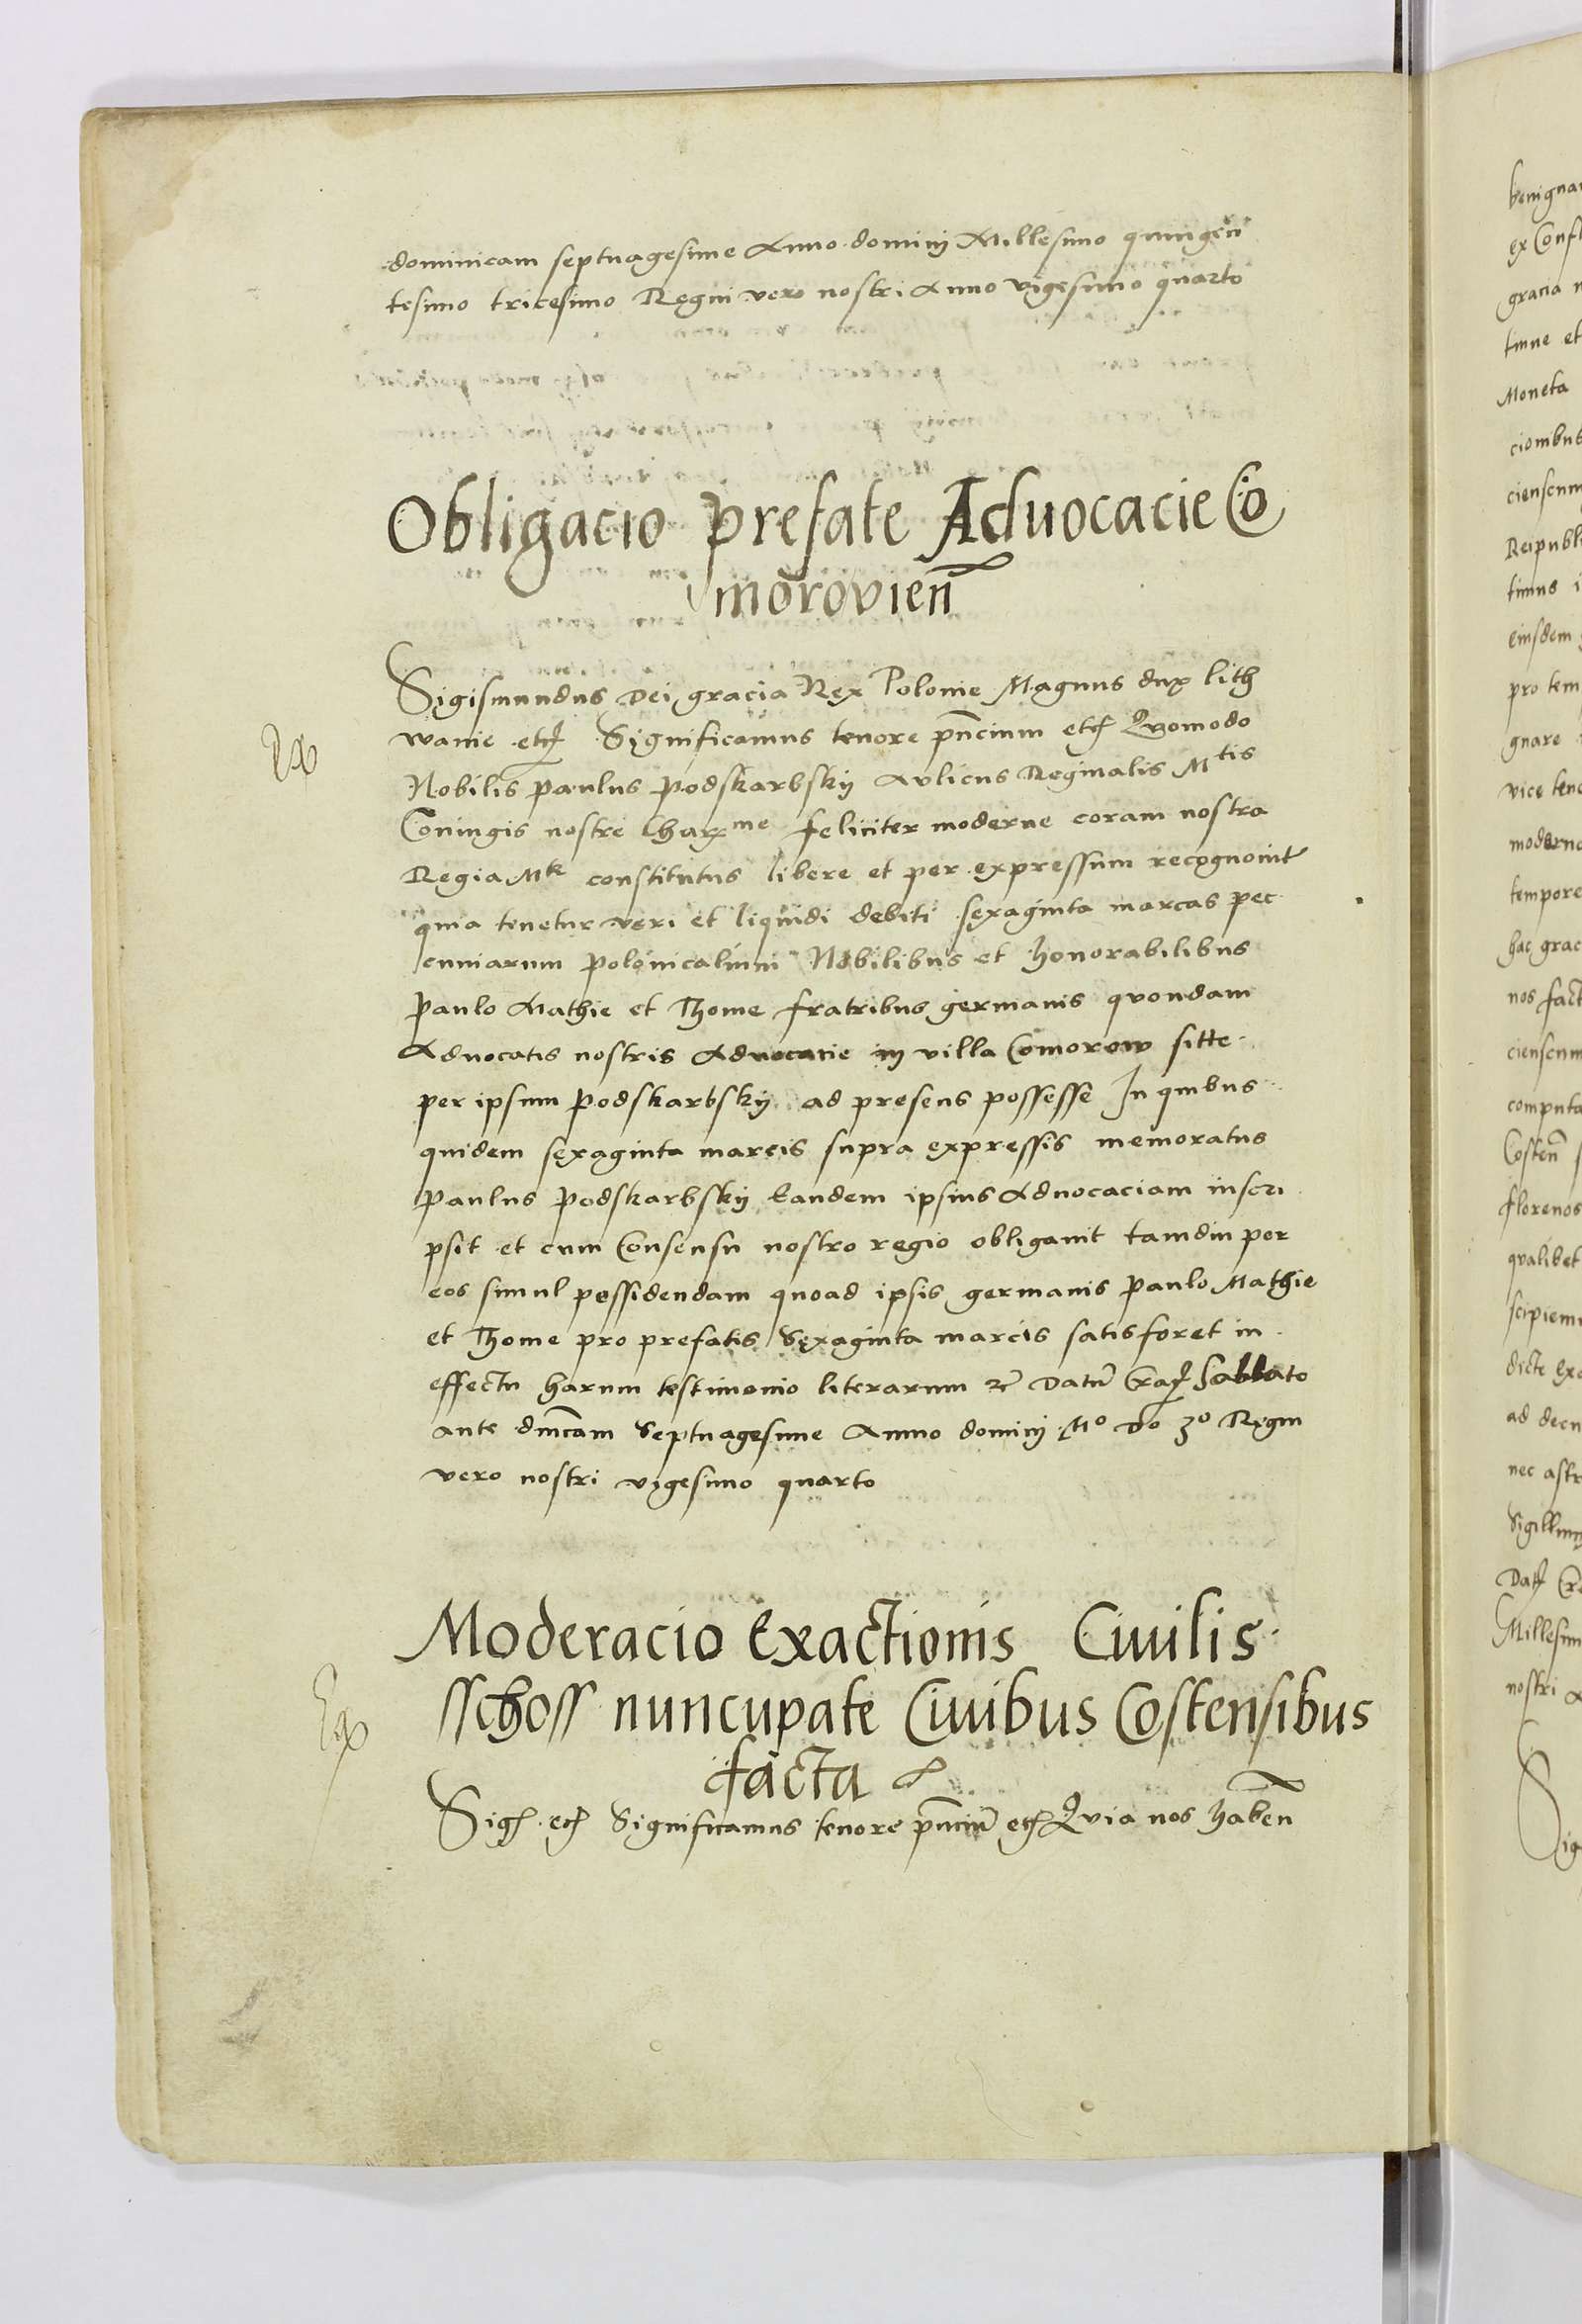 dominicam septuagesime Anno dominij Millesimo quingen
tesimo tricesimo Regni vero nostri Anno vigesimo quarto
Obligacio prefate Aduocacie Co
morovien̄
Sigismundus Dei gracia Rex Polonie Magnus dux lith
wanie etc Significamus tenore pn̄cium etc Quomodo
Nobilis Paulus Podskarbskij Aulicus Reginalis Mtis
Coniugis nostre Charme feliciter moderne coram nostra
Regia Mte constitutus libere et per expressum recognouit
quia tenetur veri et liquidi debiti sexaginta marcas pec
cuniarum polonicalium Nobilibus et honorabilibus
Paulo Mathie et Thome fratribus germanis quondam
Aduocatis nostris Aduocacie in villa Comorow sitte
per ipsum Podskarbskij ad presens possesse In quibus
quidem sexaginta marcis supra expressis memoratus
Paulus Podskarbskij Eandem ipsius Aduocaciam inscri
psit et cum Consensu nostro regio obligauit tamdiu per
eos simul possidendam quoad ipsis germanis Paulo Mathie
et Thome pro prefatis Sexaginta marcis satisforet in
effectu harum testimonio literarum Datum Crac Sabbato
ante dn̄icam Septuagesime Anno dominij Mo Do 30 Regni
vero nostri vigesimo quarto
Ex
Moderacio Exactionis Ciuilis
sschoss nuncupate Ciuibus Costensibus
facta
Ex
Sig etc Significamus tenore pn̄cium etc Quia nos haben̄
benigna
gracia
Moneta
cionibus
ciensium
Reipubli
eiusdem
pro tem
gnare
moderno
tempore
hac grac
nos fact
computa
Costen̄
florenos
qualibet
nec astr
Sigillum
Millesim
nostri